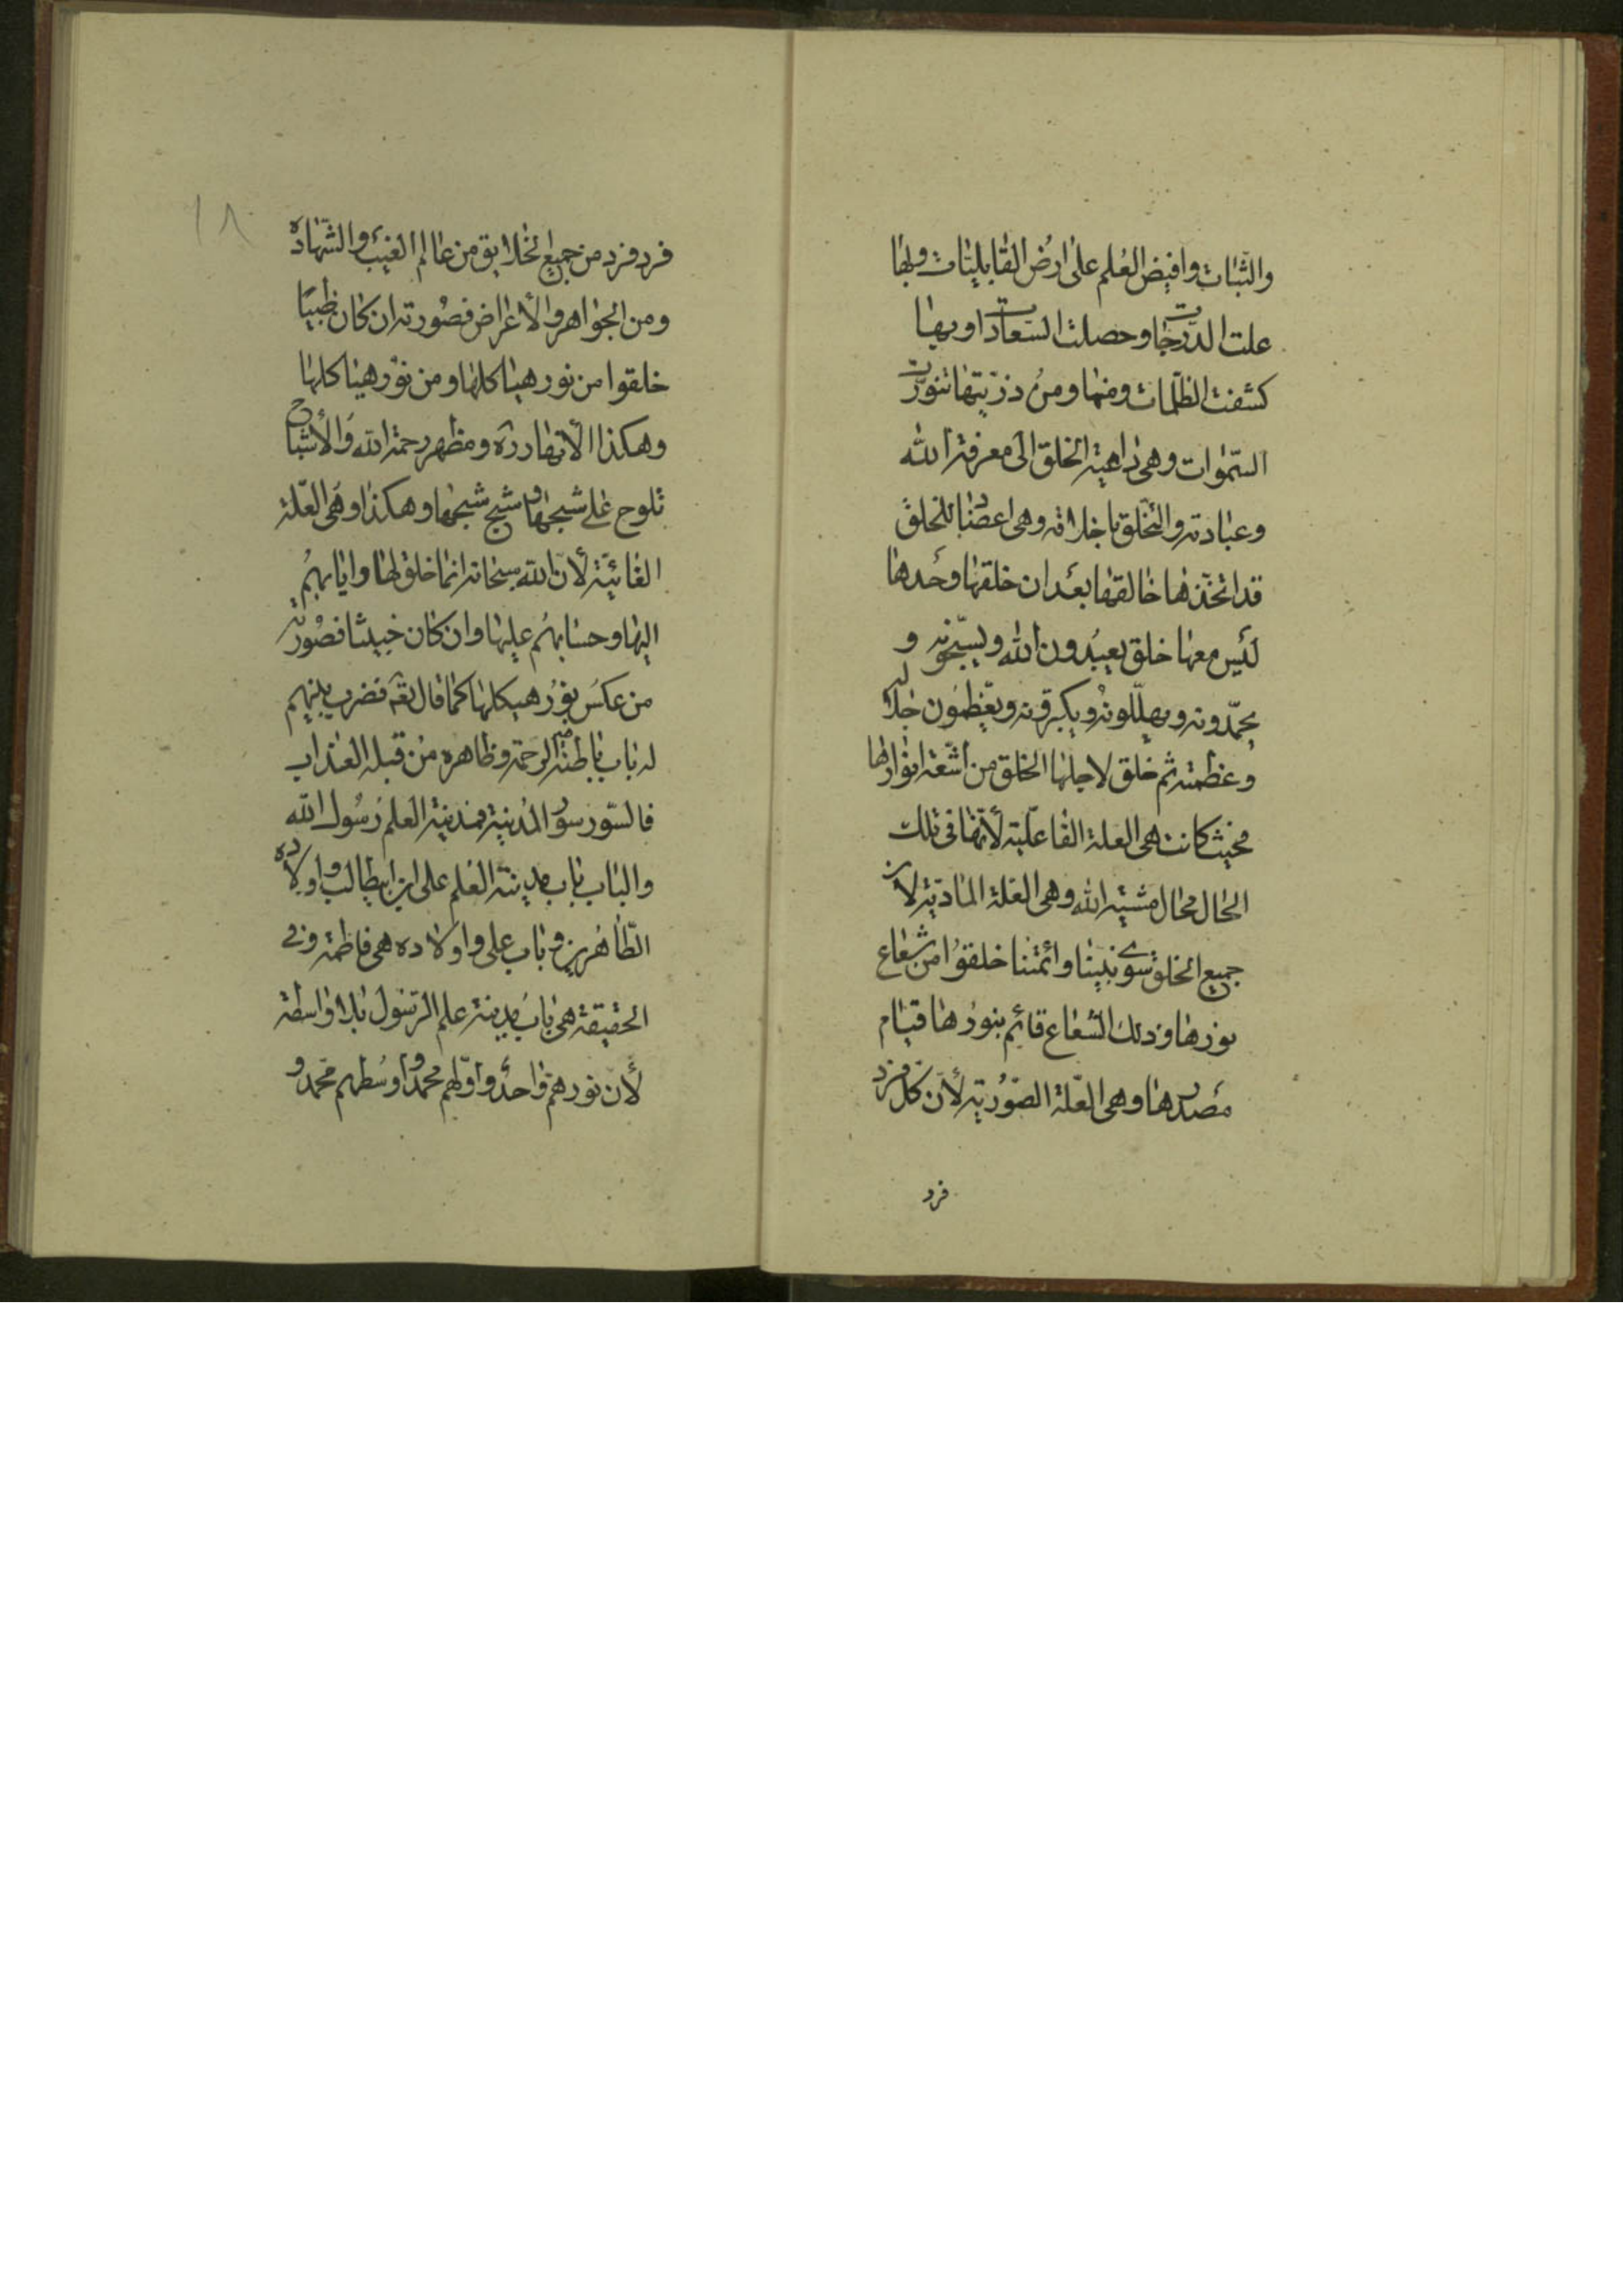 والثبات وافیض العلم علی ارض القابلیات وبها
علت الدرجات وحصلت السعادات وبها
کشفت الظلمات ومنها ومن ذریتها تنورت
السموات وهی داعیة الخلق الی معرفة الله
وعبادته والتخلق باخلاقه وهی اعضاد للخلق
قد اتخذها خالقها بعد ان خلقها وحدها
لیس معها خلق یعبدون الله ویسبحونه و
یحمدونه ویهللونه ویکبرونه ویعظمون جلاله
وعظمته ثم خلق لاجلها الخلق من اشعة انوارها
فحیث کانت هی العلة الفاعلیة لأنها فی تلک
الحال محال مشیة الله وهی العلة المادیة لان
جمیع الخلق سوی نبینا وائمتنا خلقوا من شعاع
نورها وذلک الشعاع قائم بنورها قیام
مصدرها وهی العلة الصوریة لأن کل فرد
فرد
۱۸
فرد فرد من جمیع الخلایق من عالم الغیب والشهادة
ومن الجواهر والأعراض فصورته ان کان طیبا
خلقوا من نور هیاکلها ومن نور هیاکلها
وهکذا الأنها ومظهر رحمة الله والأشباح
تلوح علی شبحها وشبح شبحها وهکذا وهی العلة
الغائیة لأن الله سبحانه انما خلق لها وایابهم
الیها وحسابهم علیها وان کان خبیثا فصورته
من عکس نور هیکلها کما قال تعه فضرب بینهم
له باب باطنه فیه الرحمة وظاهره من قبله العذاب
فالسور سور المدینة فمدینة العلم رسول الله
والباب باب مدینة العلم علی ابن ابیطالب واولاده
الطاهرین وباب علی واولاده هی فاطمة وفی
الحقیقة هی باب مدینة علم الرسول بلا واسطة
لأن نورهم واحد واولهم محمد واوسطهم محمد و